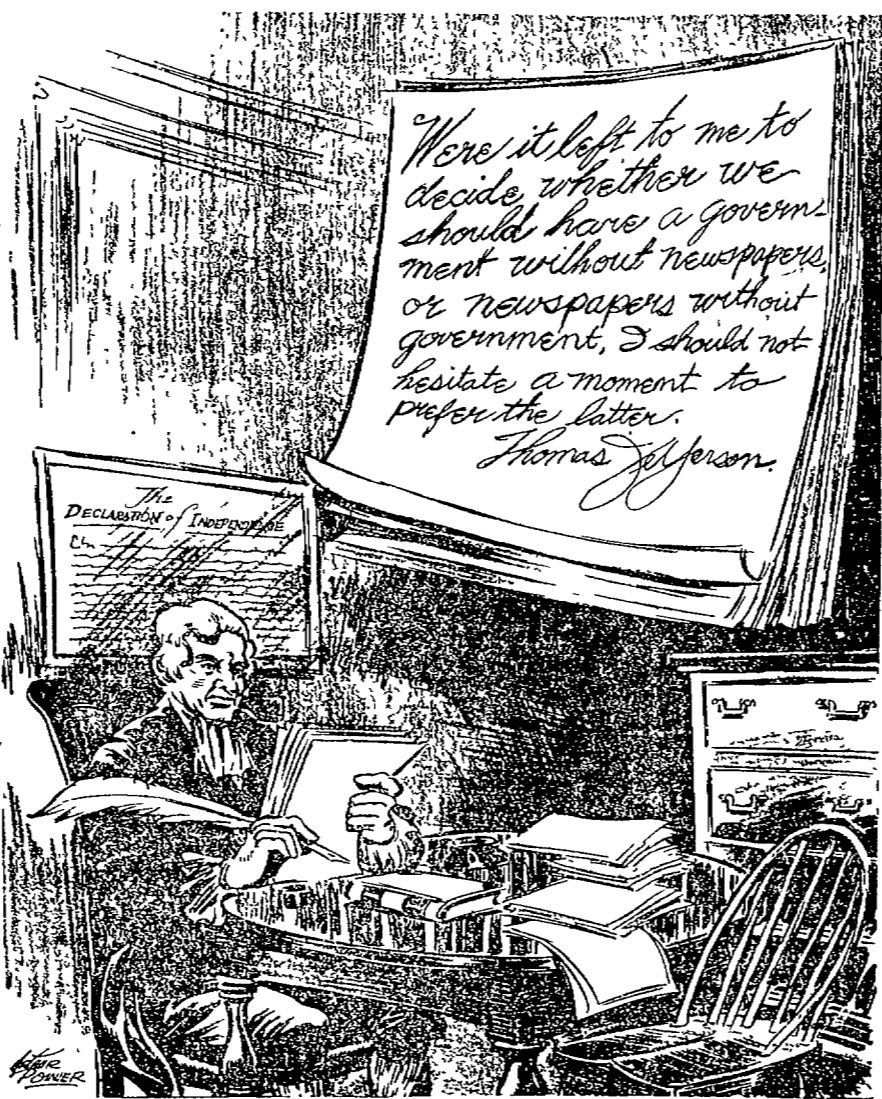 Were it left to me to
decide whether we
should have a govern-
ment without newspapers,
or newspapers without
government, I should not
hesitate a moment to
prefer the latter.
Thomas Jefferson.
The
DECLARATION of INDEPENDENCE
POWER